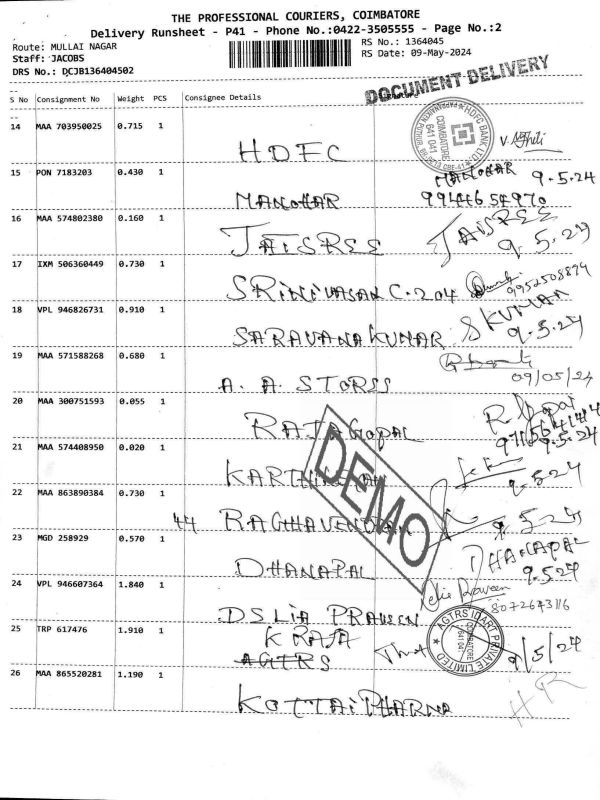 THE PROFESSIONAL COURIERS, COIMBATORE
Delivery Runsheet - P41 - Phone No.:0422-3505555 - Page No.:2
Route: MULLAI NAGAR
RS No.: 1364045
Staff: JACOBS
RS Date: 09-May-2024
DRS No.: DCJB136404502
DOCUMENT DELIVERY
S No Consignment No Weight PCS Consignee Details Signature
14 MAA 703950025 0.715 1
HDFC
HDFC BANK LTD.
COIMBATORE
641 041
15 PON 7183203 0.430 1
MANOHAR 9.5.24
MANOHAR
16 MAA 574802380 0.160 1
JAISREE JAISREE
9.5.24
17 IXM 506360449 0.730 1
SRINIVASAN C.204
18 VPL 946826731 0.910 1
SARAVANA KUMAR S KUMAR
9.5.24
19 MAA 571588268 0.680 1
A. A. STORSS
09/05/24
20 MAA 300751593 0.055 1
RAJAGOPAL
9.5.24
21 MAA 574408950 0.020 1
9.5.24
DEMO
22 MAA 863890384 0.730 1
44 RAGHAVENDRAN
9.5.24
23 MGD 258929 0.570 1
DHANAPAL DHANAPAL
9.5.24
24 VPL 946607364 1.840 1
DSLIA PRAVEEN
8072643116
25 TRP 617476 1.910 1
K RAJA
AGTRS
AGTRS IDART PRIVATE LIMITED
COIMBATORE
641 041
9/5/24
26 MAA 865520281 1.190 1
KOTTAI PHARMA